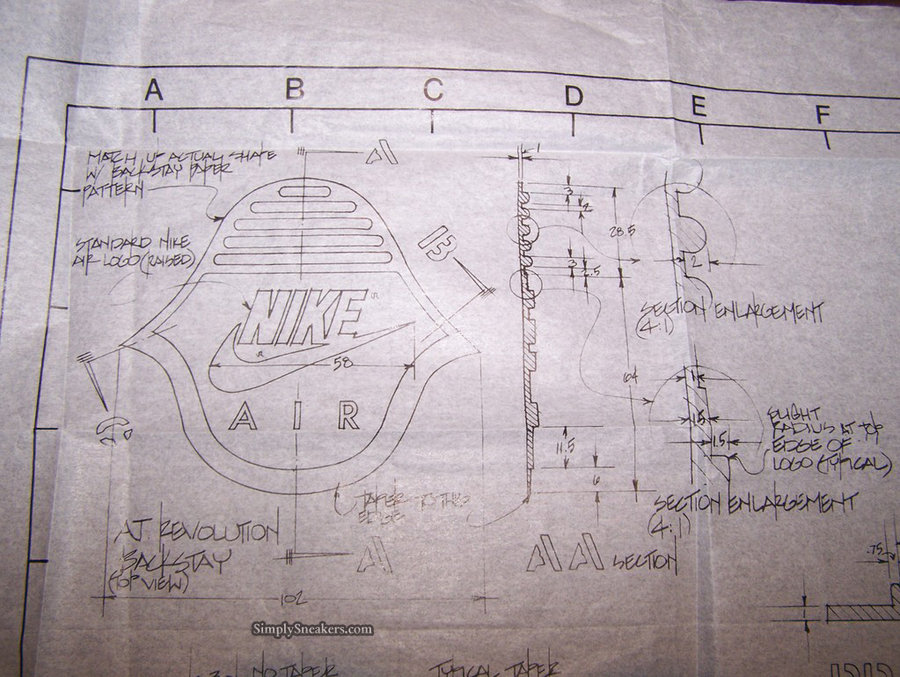 A B C D E F
MATCH UP ACTUAL SHAPE
W/ BACKSTAY PAPER
PATTERN
STANDARD NIKE
AIR LOGO (RAISED)
A
B
NIKE
R
58
AIR
TAPER TO THIS
EDGE
A.J. REVOLUTION
BACKSTAY
(TOP VIEW)
A
102
1
3
2
28.5
3
2.5
104
11.5
6
AA SECTION
2
SECTION ENLARGEMENT
(4:1)
1
1.5
1.5
SLIGHT
RADIUS AT TOP
EDGE OF
LOGO (TYPICAL)
SECTION ENLARGEMENT
(4:1)
.75
1
SimplySneakers.com
NO TAPER
TYPICAL TAPER